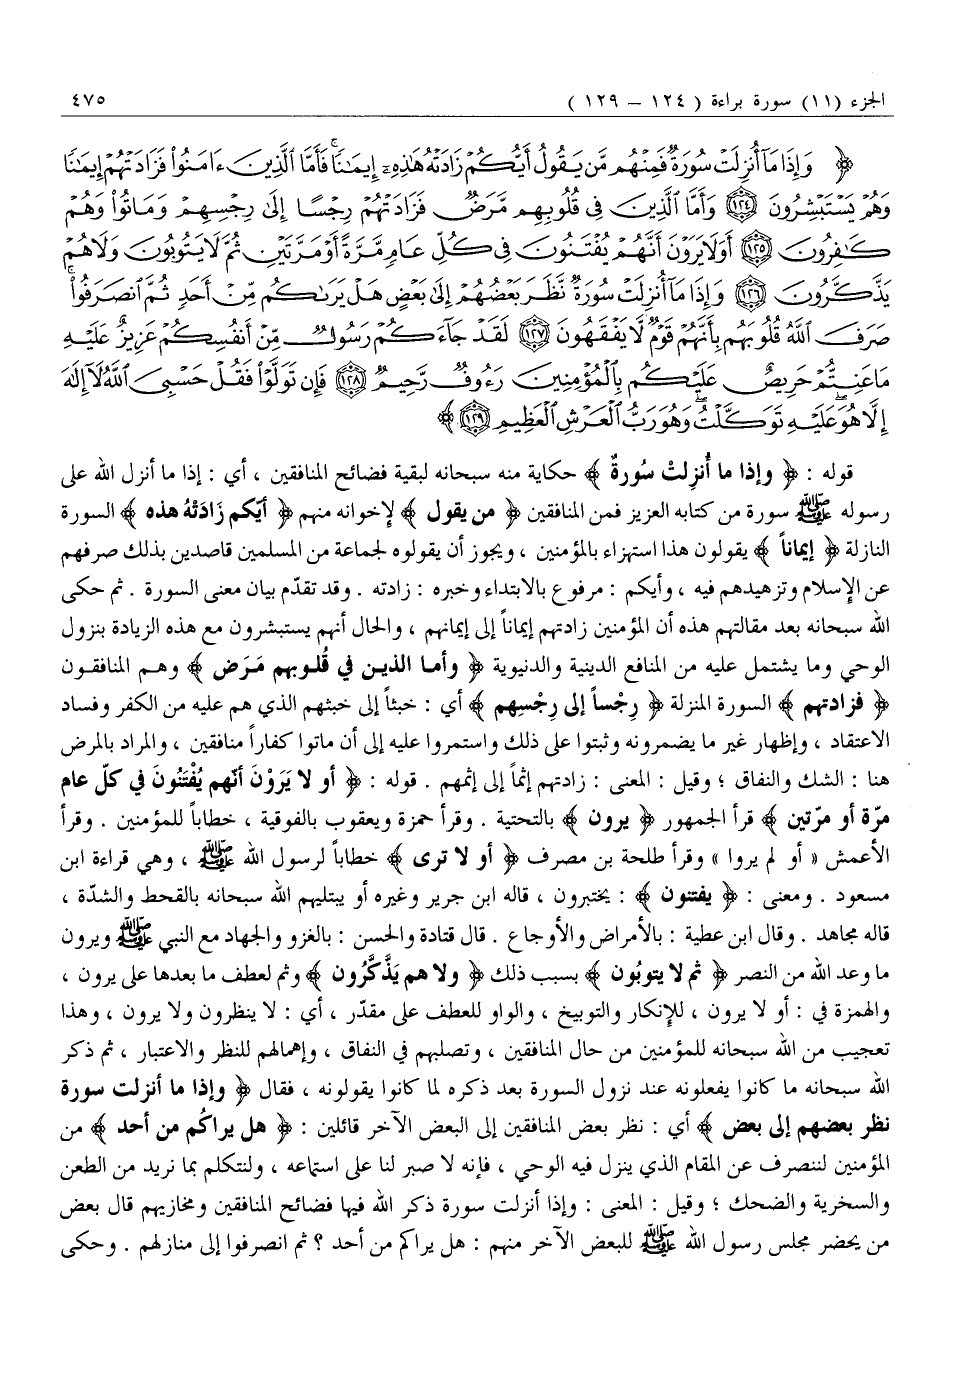 الجزء (١١) سورة براءة ( ١٢٤ – ١٢٩ ) ٤٧٥
﴿ وَإِذَا مَآ أُنزِلَتْ سُورَةٌ فَمِنْهُم مَّن يَقُولُ أَيُّكُمْ زَادَتْهُ هَٰذِهِۦٓ إِيمَٰنًا ۚ فَأَمَّا ٱلَّذِينَ ءَامَنُوا۟ فَزَادَتْهُمْ إِيمَٰنًا
وَهُمْ يَسْتَبْشِرُونَ ١٢٤ وَأَمَّا ٱلَّذِينَ فِى قُلُوبِهِم مَّرَضٌ فَزَادَتْهُمْ رِجْسًا إِلَىٰ رِجْسِهِمْ وَمَاتُوا۟ وَهُمْ
كَٰفِرُونَ ١٢٥ أَوَلَا يَرَوْنَ أَنَّهُمْ يُفْتَنُونَ فِى كُلِّ عَامٍ مَّرَّةً أَوْ مَرَّتَيْنِ ثُمَّ لَا يَتُوبُونَ وَلَا هُمْ
يَذَّكَّرُونَ ١٢٦ وَإِذَا مَآ أُنزِلَتْ سُورَةٌ نَّظَرَ بَعْضُهُمْ إِلَىٰ بَعْضٍ هَلْ يَرَىٰكُم مِّنْ أَحَدٍ ثُمَّ ٱنصَرَفُوا۟ ۚ
صَرَفَ ٱللَّهُ قُلُوبَهُم بِأَنَّهُمْ قَوْمٌ لَّا يَفْقَهُونَ ١٢٧ لَقَدْ جَآءَكُمْ رَسُولٌ مِّنْ أَنفُسِكُمْ عَزِيزٌ عَلَيْهِ
مَا عَنِتُّمْ حَرِيصٌ عَلَيْكُم بِٱلْمُؤْمِنِينَ رَءُوفٌ رَّحِيمٌ ١٢٨ فَإِن تَوَلَّوْا۟ فَقُلْ حَسْبِىَ ٱللَّهُ لَآ إِلَٰهَ
إِلَّا هُوَ ۖ عَلَيْهِ تَوَكَّلْتُ ۖ وَهُوَ رَبُّ ٱلْعَرْشِ ٱلْعَظِيمِ ١٢٩ ﴾
قوله : ﴿ وإذا ما أُنزِلتْ سُورةٌ ﴾ حكاية منه سبحانه لبقية فضائح المنافقين ، أي : إذا ما أنزل الله على
رسوله ﷺ سورة من كتابه العزيز فمن المنافقين ﴿ من يقول ﴾ لإخوانه منهم ﴿ أيّكم زَادَتْهُ هذه ﴾ السورة
النازلة ﴿ إيماناً ﴾ يقولون هذا استهزاء بالمؤمنين ، ويجوز أن يقولوه لجماعة من المسلمين قاصدين بذلك صرفهم
عن الإسلام وتزهيدهم فيه ، وأيكم : مرفوع بالابتداء وخبره : زادته . وقد تقدّم بيان معنى السورة . ثم حكى
الله سبحانه بعد مقالتهم هذه أن المؤمنين زادتهم إيماناً إلى إيمانهم ، والحال أنهم يستبشرون مع هذه الزيادة بنزول
الوحي وما يشتمل عليه من المنافع الدينية والدنيوية ﴿ وأما الذين في قُلوبهم مَرَض ﴾ وهم المنافقون
﴿ فزادتهم ﴾ السورة المنزلة ﴿ رِجْساً إلى رِجْسِهم ﴾ أي : خبثاً إلى خبثهم الذي هم عليه من الكفر وفساد
الاعتقاد ، وإظهار غير ما يضمرونه وثبتوا على ذلك واستمروا عليه إلى أن ماتوا كفاراً منافقين ، والمراد بالمرض
هنا : الشك والنفاق ؛ وقيل : المعنى : زادتهم إثماً إلى إثمهم . قوله : ﴿ أو لا يَرَوْنَ أنّهم يُفْتَنُونَ في كلّ عام
مرّة أو مرّتين ﴾ قرأ الجمهور ﴿ يرون ﴾ بالتحتية . وقرأ حمزة ويعقوب بالفوقية ، خطاباً للمؤمنين . وقرأ
الأعمش « أو لم يروا » وقرأ طلحة بن مصرف ﴿ أو لا ترى ﴾ خطاباً لرسول الله ﷺ ، وهي قراءة ابن
مسعود . ومعنى : ﴿ يفتنون ﴾ : يختبرون ، قاله ابن جرير وغيره أو يبتليهم الله سبحانه بالقحط والشدّة ،
قاله مجاهد . وقال ابن عطية : بالأمراض والأوجاع . قال قتادة والحسن : بالغزو والجهاد مع النبي ﷺ ويرون
ما وعد الله من النصر ﴿ ثم لا يتوبُون ﴾ بسبب ذلك ﴿ ولا هم يَذَّكَّرُون ﴾ وثم لعطف ما بعدها على يرون ،
والهمزة في : أو لا يرون ، للإنكار والتوبيخ ، والواو للعطف على مقدّر ، أي : لا ينظرون ولا يرون ، وهذا
تعجيب من الله سبحانه للمؤمنين من حال المنافقين ، وتصلبهم في النفاق ، وإهمالهم للنظر والاعتبار ، ثم ذكر
الله سبحانه ما كانوا يفعلونه عند نزول السورة بعد ذكره لما كانوا يقولونه ، فقال ﴿ وإذا ما أنزلت سورة
نظر بعضهم إلى بعض ﴾ أي : نظر بعض المنافقين إلى البعض الآخر قائلين : ﴿ هل يراكُم من أحد ﴾ من
المؤمنين لننصرف عن المقام الذي ينزل فيه الوحي ، فإنه لا صبر لنا على استماعه ، ولنتكلم بما نريد من الطعن
والسخرية والضحك ؛ وقيل : المعنى : وإذا أنزلت سورة ذكر الله فيها فضائح المنافقين ومخازيهم قال بعض
من يحضر مجلس رسول الله ﷺ للبعض الآخر منهم : هل يراكم من أحد ؟ ثم انصرفوا إلى منازلهم . وحكى